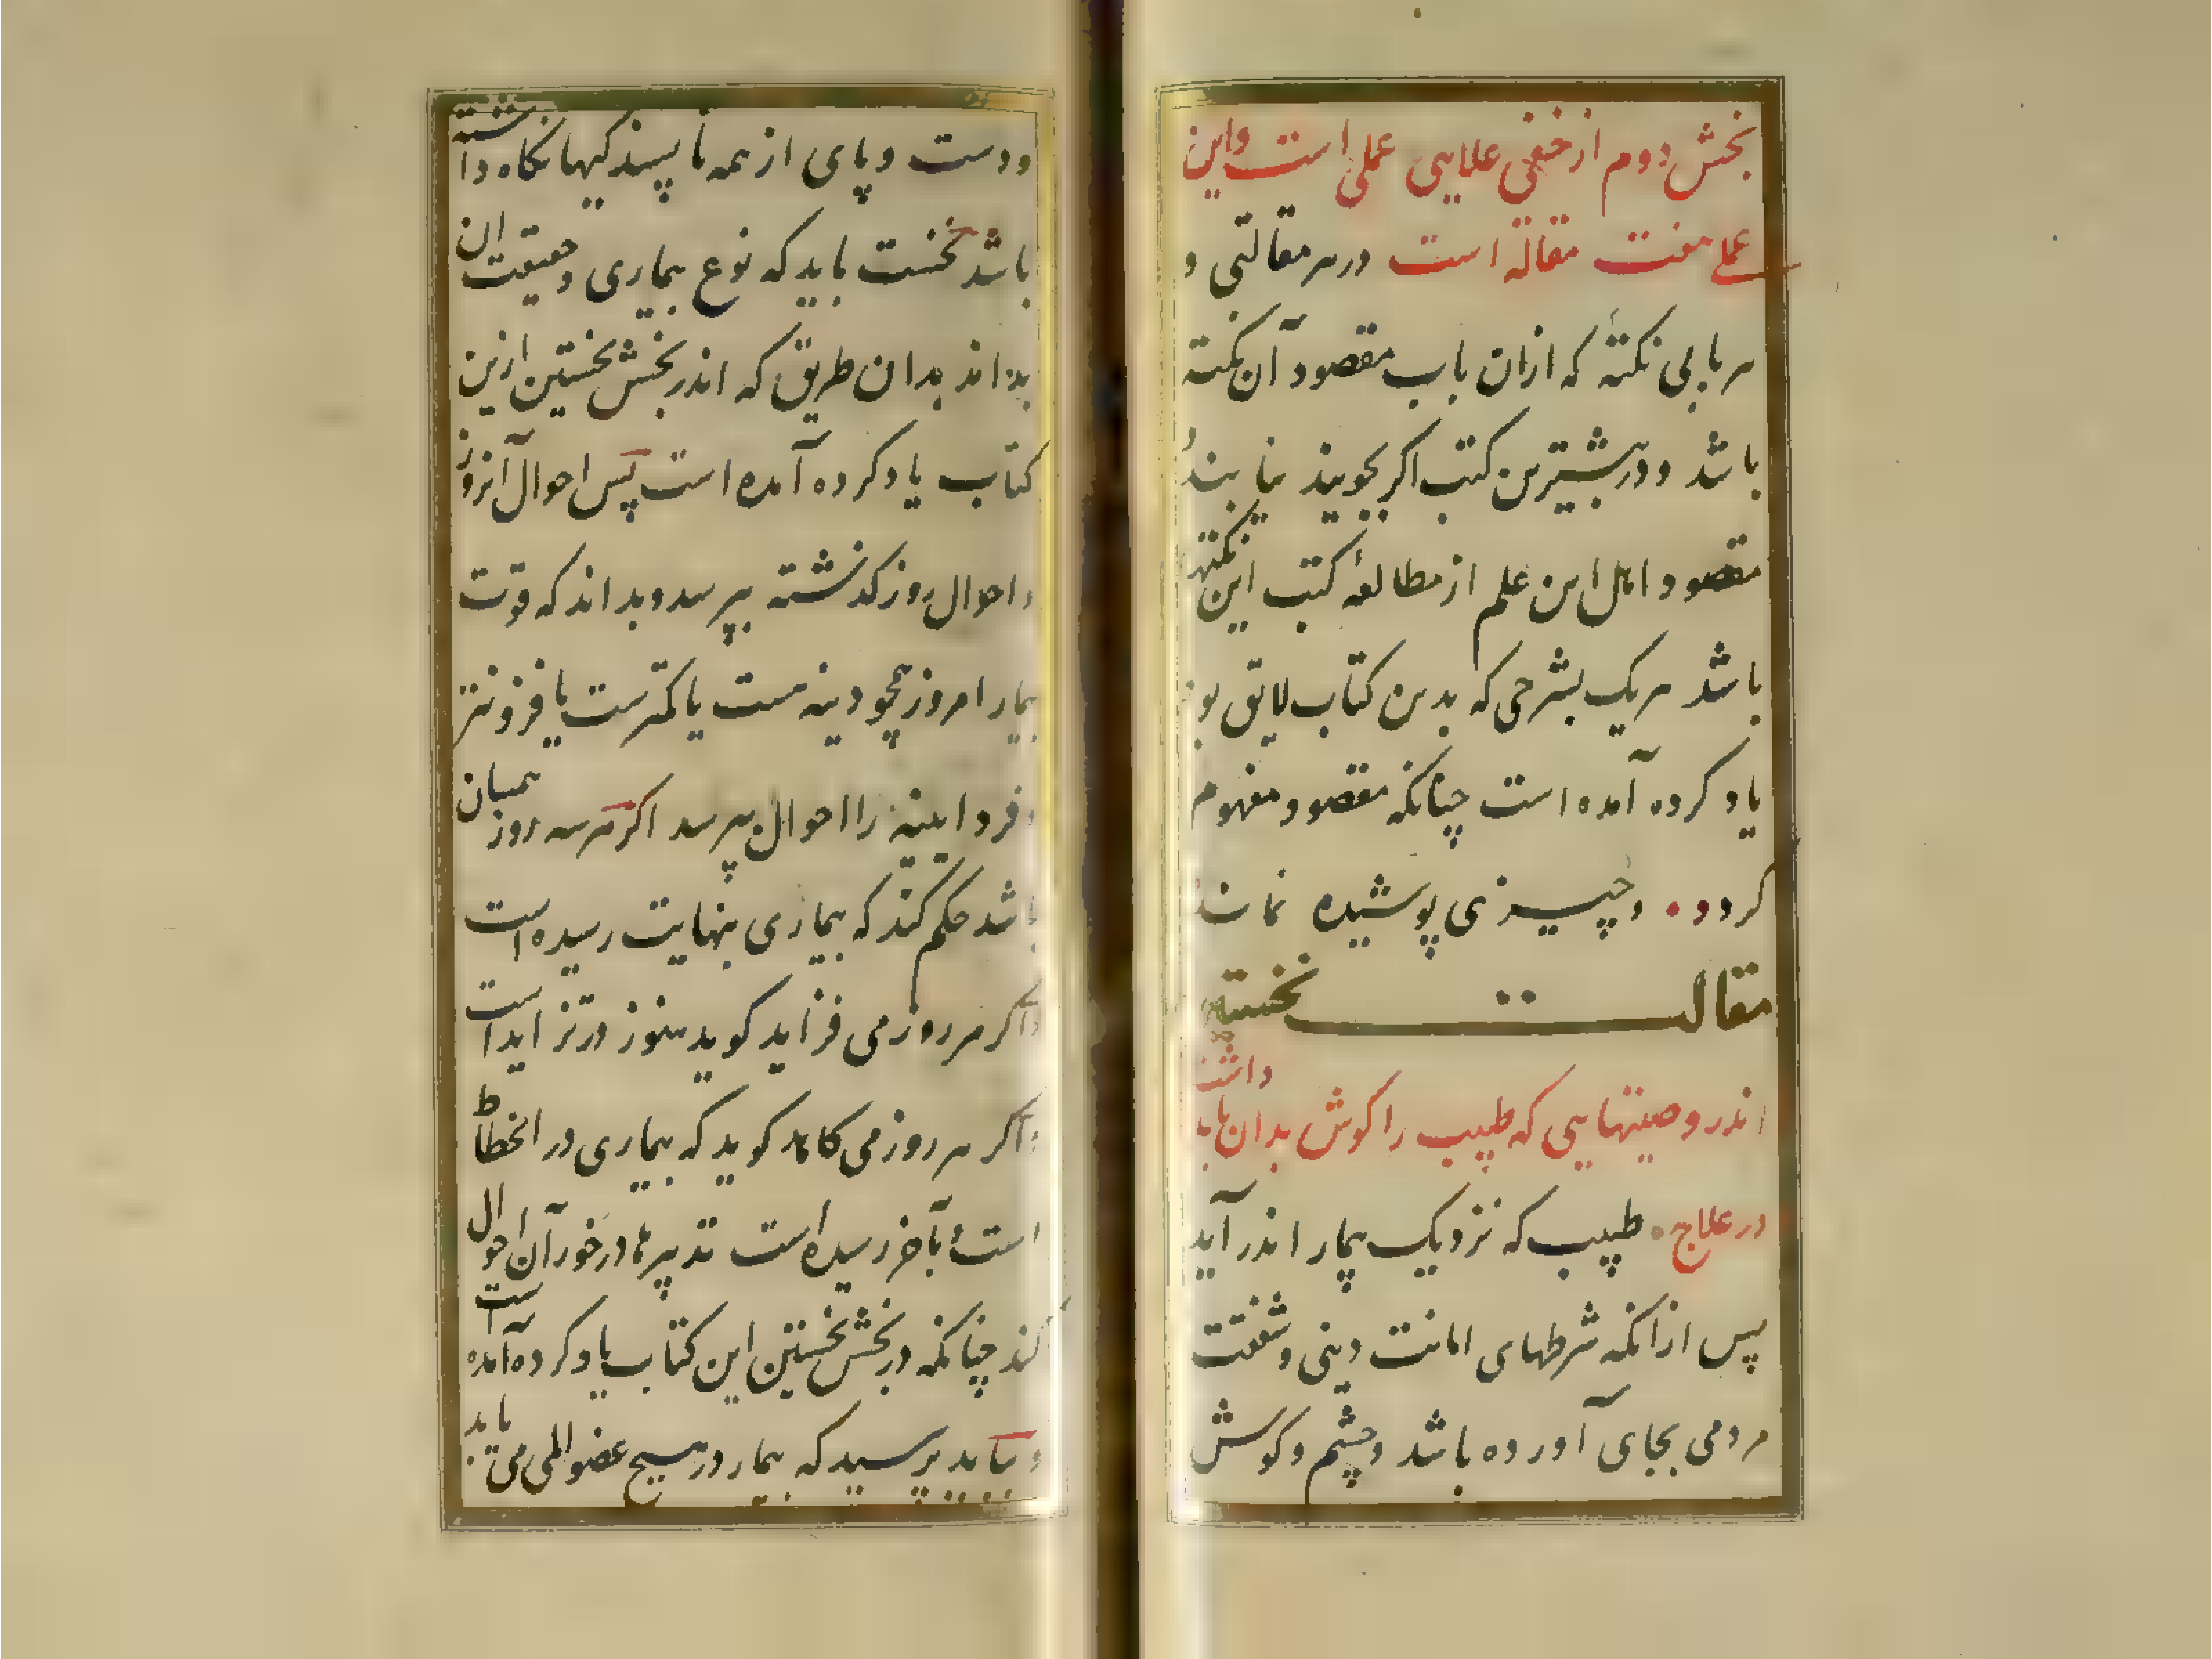 بخش دوم از خفی علایی عملی است و این
عملی هفت مقاله است در هر مقالتی و
هر بابی نکتهٔ که ازان باب مقصود آن نکته
باشد و در بیشترین کتب اکر بجویند نیابند
مقصود اهل این علم از مطالعهٔ کتب این نکتها
باشد هر یک بشرحی که بدین کتاب لایق بود
یاد کرده آمده است چنانکه مقصود مفهوم
کردد • و چیزی پوشیده نماند
مقالت نخستین
اندر وصیتهایی که طبیب را کوش بدان باید داشت
در علاج • طبیب که نزدیک بیمار اندر آید
پس ازانکه شرطهای امانت دینی و شفقت
مردمی بجای آورده باشد و چشم و کوش
و دست و پای از همه ناپسندکیها نکاه داشته
باشد نخست باید که نوع بیماری و حقیقت ان
بداند بدان طریق که اندر بخش نخستین ازین
کتاب یاد کرده آمده است پس احوال آنروز
و احوال روز کذشته بپرسد و بداند که قوت
بیمار امروز همچو دینه هست یا کمترست یا فزونتر
و فردا بینه را احوال بپرسد اکر هر سه روز همبان
باشد حکم کند که بیماری بنهایت رسیده است
و اکر هر روز می فزاید کوید هنوز در تزاید است
و اکر هر روز می کاهد کوید که بیماری در انحطاط
است و بآخر رسیده است تدبیرها در خور آن احوال
کند چنانکه در بخش نخستین این کتاب یاد کرده آمده است
و بباید پرسید که بیمار در هیچ عضو المی می یابد